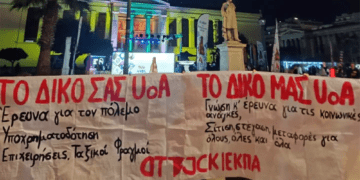 ΤΟ ΔΙΚΟ ΣΑΣ UoA
Έρευνα για τον πόλεμο
Υποχρηματοδότηση
Επιχειρήσεις, Ταξικοί Φραγμοί
ΤΟ ΔΙΚΟ ΜΑΣ UoA
Γνώση κ' έρευνα για τις κοινωνικές
ανάγκες,
Σίτιση, στέγαση, μεταφορές για
όλους, όλες και όλα